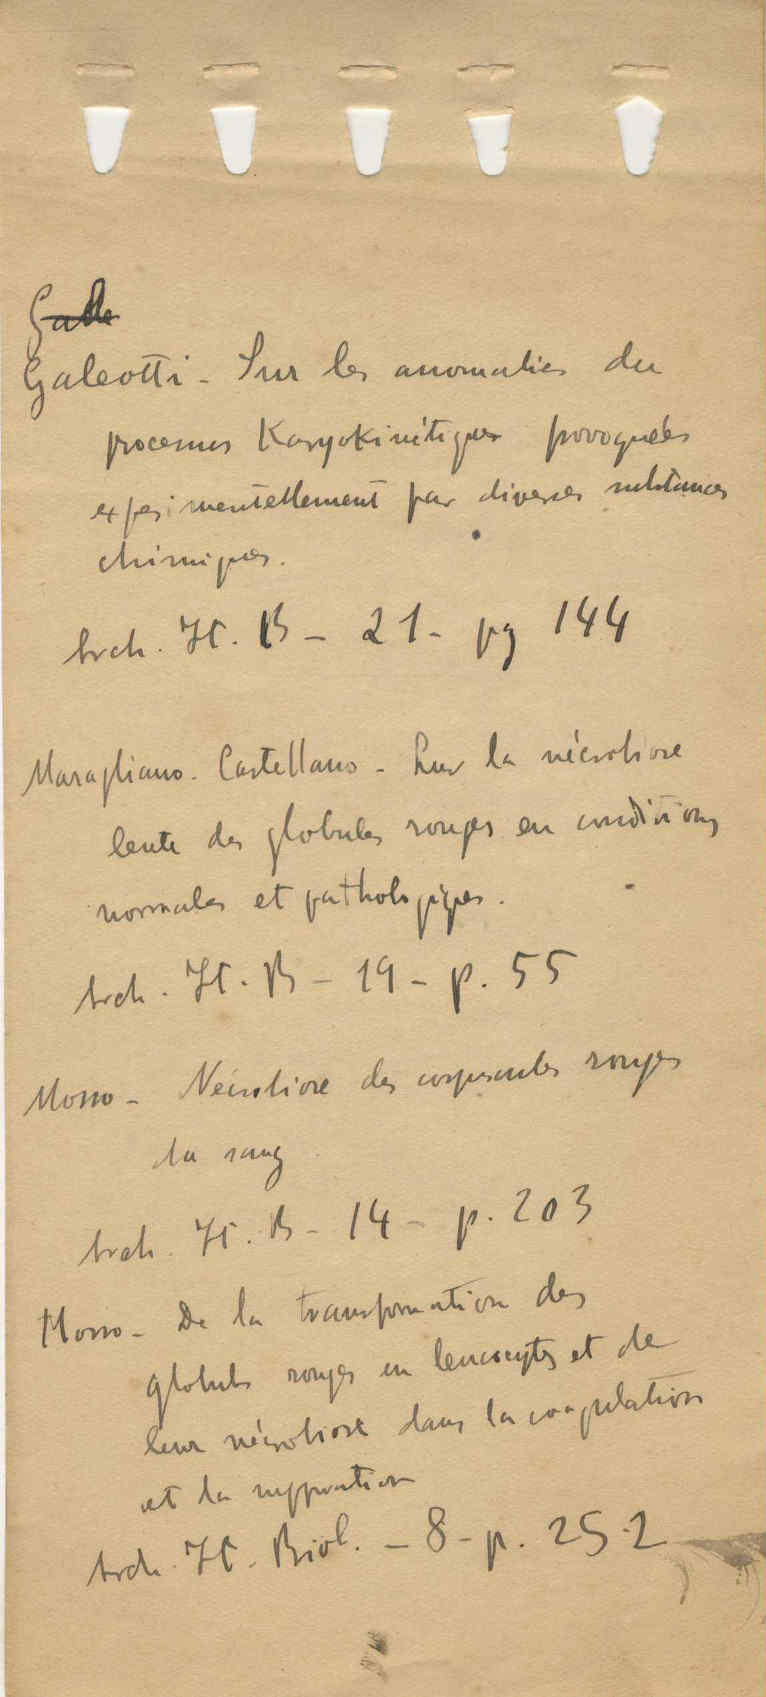 Galeotti - Sur les anomalies du
processus Karyokinétiques provoquées
experimentellement par diverses substances
chimiques.
Arch. It. B - 21 - pg 144
Maragliano. Castellano - Sur la nécrobiose
lente des globules rouges en conditions
normales et pathologiques.
Arch. It. B - 19 - p. 55
Mosso - Nécrobiose des corpuscules rouges
du sang
Arch. It. B - 14 - p. 203
Mosso - De la transformation des
globules rouges en leucocytes et de
leur nécrobiose dans la coagulation
et la suppuration
Arch. It. Biol. - 8 - p. 252